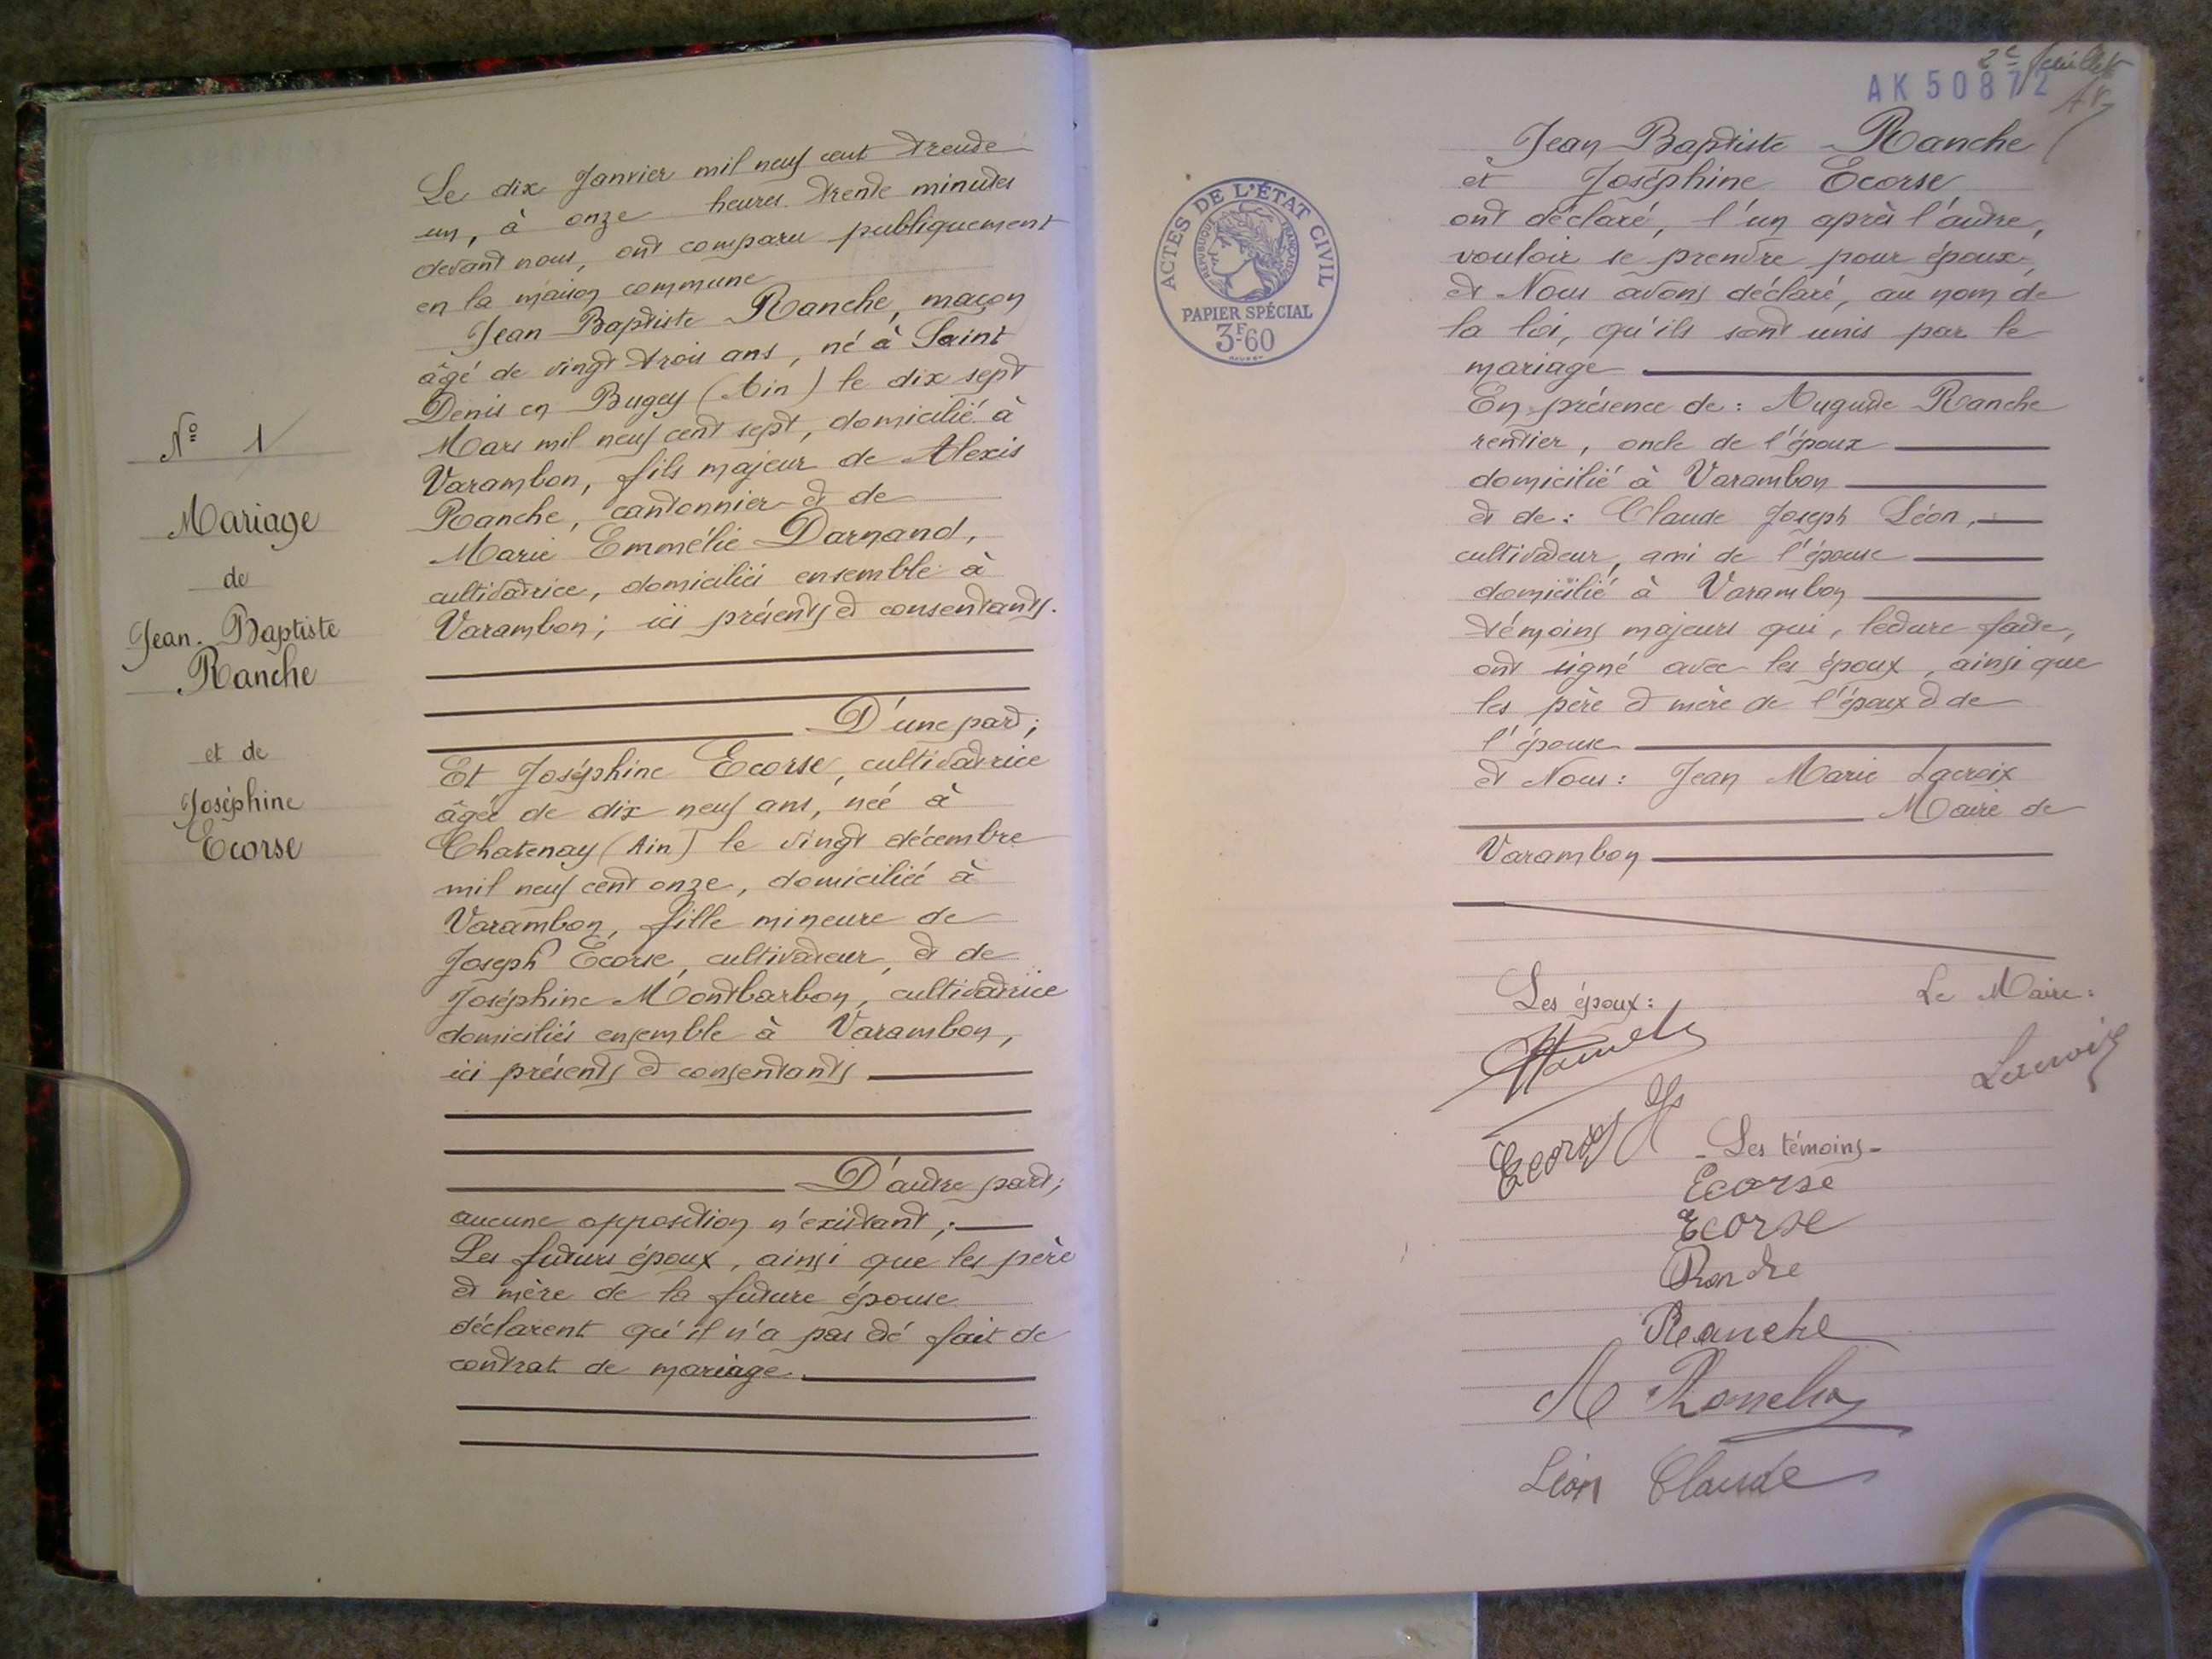 Le dix Janvier mil neuf cent trente
un, à onze heures trente minutes
devant nous, ont comparu publiquement
en la maison commune
Jean Baptiste Ranche, maçon
âgé de vingt trois ans, né à Saint
Denis en Bugey (Ain) le dix sept
Mars mil neuf cent sept, domicilié à
Varambon, fils majeur de Alexis
Ranche, cantonnier et de
Marie Emmélie Darnand,
cultivatrice, domiciliés ensemble à
Varambon; ici présents et consentants.
D'une part;
Et Joséphine Ecorse, cultivatrice
âgée de dix neuf ans, née à
Chatenay (Ain) le vingt décembre
mil neuf cent onze, domiciliée à
Varambon, fille mineure de
Joseph Ecorse, cultivateur, et de
Joséphine Montbarbon, cultivatrice
domiciliés ensemble à Varambon,
ici présents et consentants
D'autre part;
aucune opposition n'existant;
Les futurs époux, ainsi que les père
et mère de la future épouse
déclarent qu'il n'a pas été fait de
contrat de mariage.
Nº 1
Mariage
de
Jean-Baptiste
Ranche
et de
Joséphine
Ecorse
2e feuillet
AK 50872
ACTES DE L'ÉTAT CIVIL
RÉPUBLIQUE FRANÇAISE
PAPIER SPÉCIAL
3F60
Jean Baptiste Ranche
et Joséphine Ecorse
ont déclaré, l'un après l'autre,
vouloir se prendre pour époux,
et Nous avons déclaré, au nom de
la loi, qu'ils sont unis par le
mariage
En présence de: Auguste Ranche
rentier, oncle de l'époux
domicilié à Varambon
et de: Claude Joseph Léon,
cultivateur, ami de l'épouse
domicilié à Varambon
témoins majeurs qui, lecture faite,
ont signé avec les époux, ainsi que
les père et mère de l'époux et de
l'épouse
et Nous: Jean Marie Lacroix
Maire de
Varambon
Les époux:
Le Maire:
Ranche
Lacroix
Ecorse
Les témoins-
Ecorse
Ecorse
Ranche
Ranche
Léon Claude